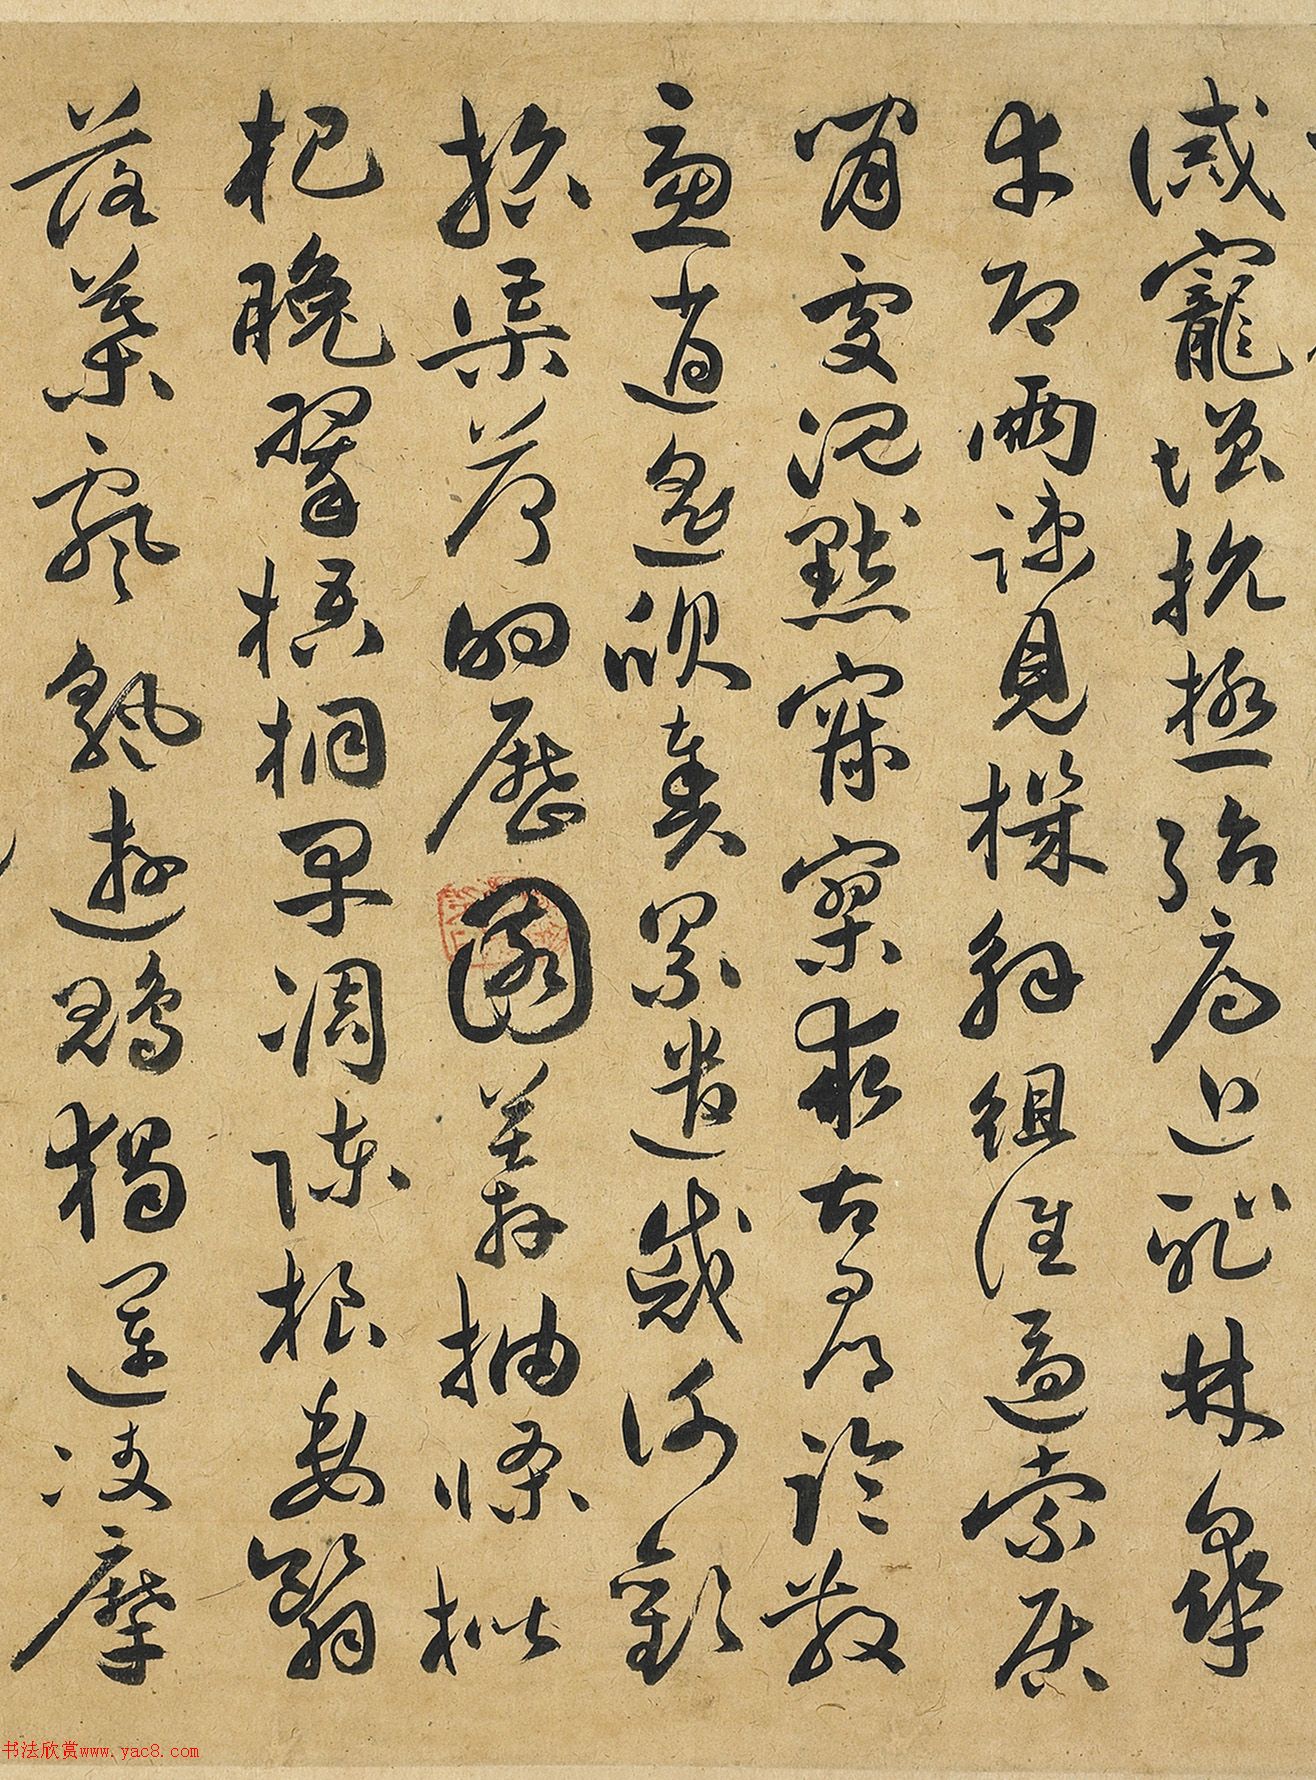 誡寵增抗極殆辱近耻林皋
幸即兩疏見機解組誰逼索居
閑處沉默寂寥求古尋論散
慮逍遙欣奏累遣慼謝歡
招渠荷的歷園莽抽條枇
杷晚翠梧桐早凋陳根委翳
落葉飄颻遊鵾獨運凌摩
书法欣赏www.yac8.com